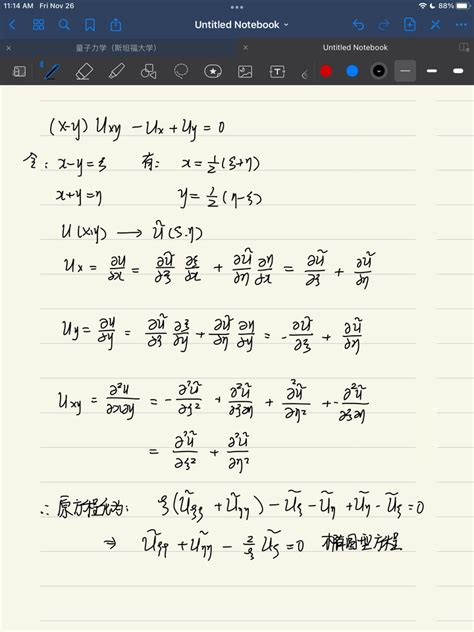 11:14 AM Fri Nov 26 88%
Untitled Notebook
量子力学（斯坦福大学） Untitled Notebook
(x-y) Uxy - Ux + Uy = 0
令: x-y=ξ 有: x=½(ξ+η)
x+y=η y=½(η-ξ)
U(x,y) → ũ(S,η)
Ux = ∂u/∂x = ∂ũ/∂ξ ∂ξ/∂x + ∂ũ/∂η ∂η/∂x = ∂ũ/∂ξ + ∂ũ/∂η
Uy = ∂u/∂y = ∂ũ/∂ξ ∂ξ/∂y + ∂ũ/∂η ∂η/∂y = -∂ũ/∂ξ + ∂ũ/∂η
Uxy = ∂²u/∂x∂y = -∂²ũ/∂ξ² + ∂²ũ/∂ξ∂η + ∂²ũ/∂η² + -∂²ũ/∂ξ∂η
= ∂²ũ/∂ξ² + ∂²ũ/∂η²
∴ 原方程化为: ξ(ũξξ + ũηη) - ũξ - ũη + ũη - ũξ = 0
⇒ ũξξ + ũηη - 2/ξ ũξ = 0 椭圆型方程